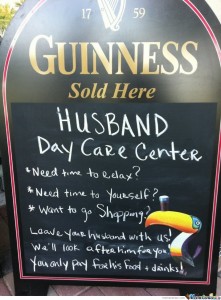 17 59
GUINNESS
Sold Here
HUSBAND
Day Care Center
*Need time to relax?
*Need time to Yourself?
*Want to go Shopping?
Leave your husband with us!
We'll look after him for you
You only pay for his food + drinks!